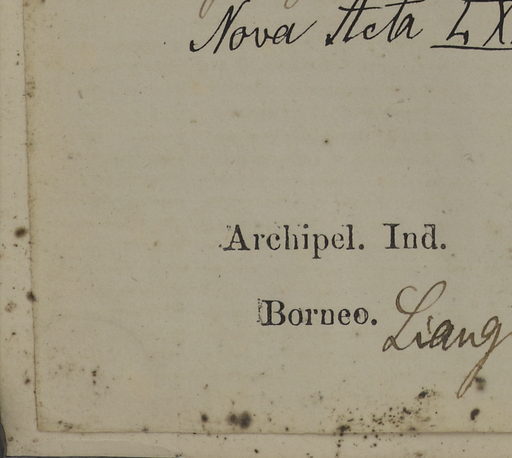 Nova Acta LX
Archipel. Ind.
Borneo. Liang